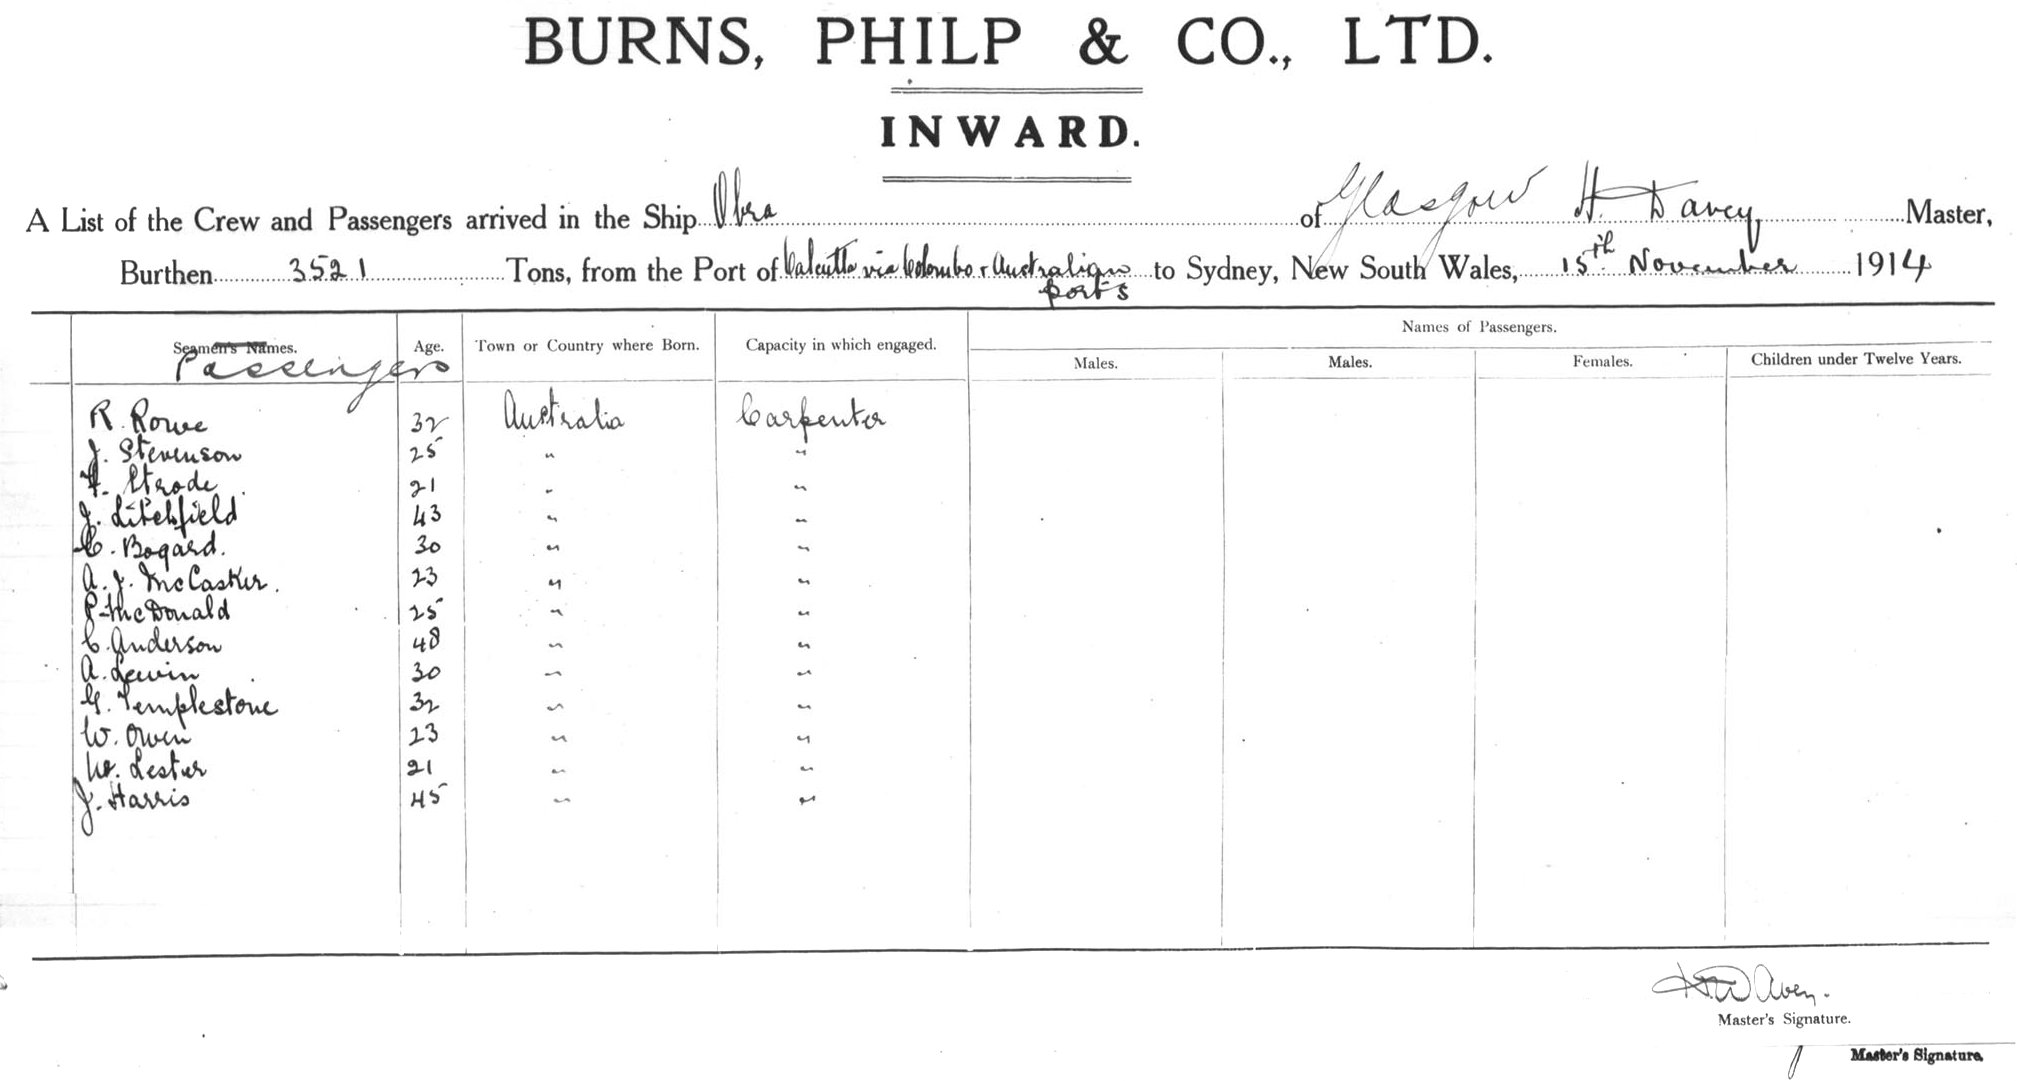 BURNS, PHILP & CO., LTD.
INWARD.
A List of the Crew and Passengers arrived in the Ship Obra of Glasgow H. Davey Master,
Burthen 3521 Tons, from the Port of Calcutta via Colombo & Australian ports to Sydney, New South Wales, 15th November 1914
Names of Passengers.
Seamen's Names. Age. Town or Country where Born. Capacity in which engaged. Males. Males. Females. Children under Twelve Years.
Passengers
R. Rowe 32 Australia Carpenter
J. Stevenson 25 " "
Strode 21 " "
J. Litchfield 43 " "
C. Bogard. 30 " "
A. J. McCasker. 23 " "
P. McDonald 25 " "
C. Anderson 48 " "
A. Lewin 30 " "
G. Templestone 32 " "
W. Owen 23 " "
W. Lester 21 " "
J. Harris 45 " "
H Davey.
Master's Signature.
Master's Signature.